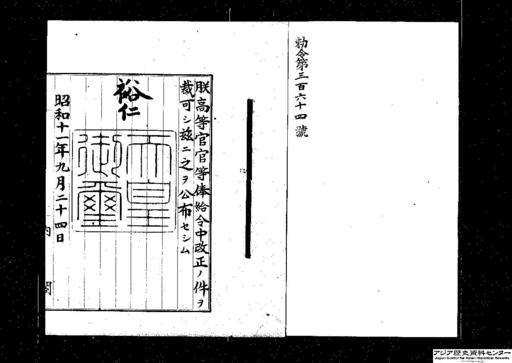 勅令第三百六十四號
朕高等官官等俸給令中改正ノ件ヲ
裁可シ玆ニ之ヲ公布セシム
裕仁
天皇御璽
昭和十一年九月二十四日
内閣
アジア歴史資料センター
Japan Center for Asian Historical Records